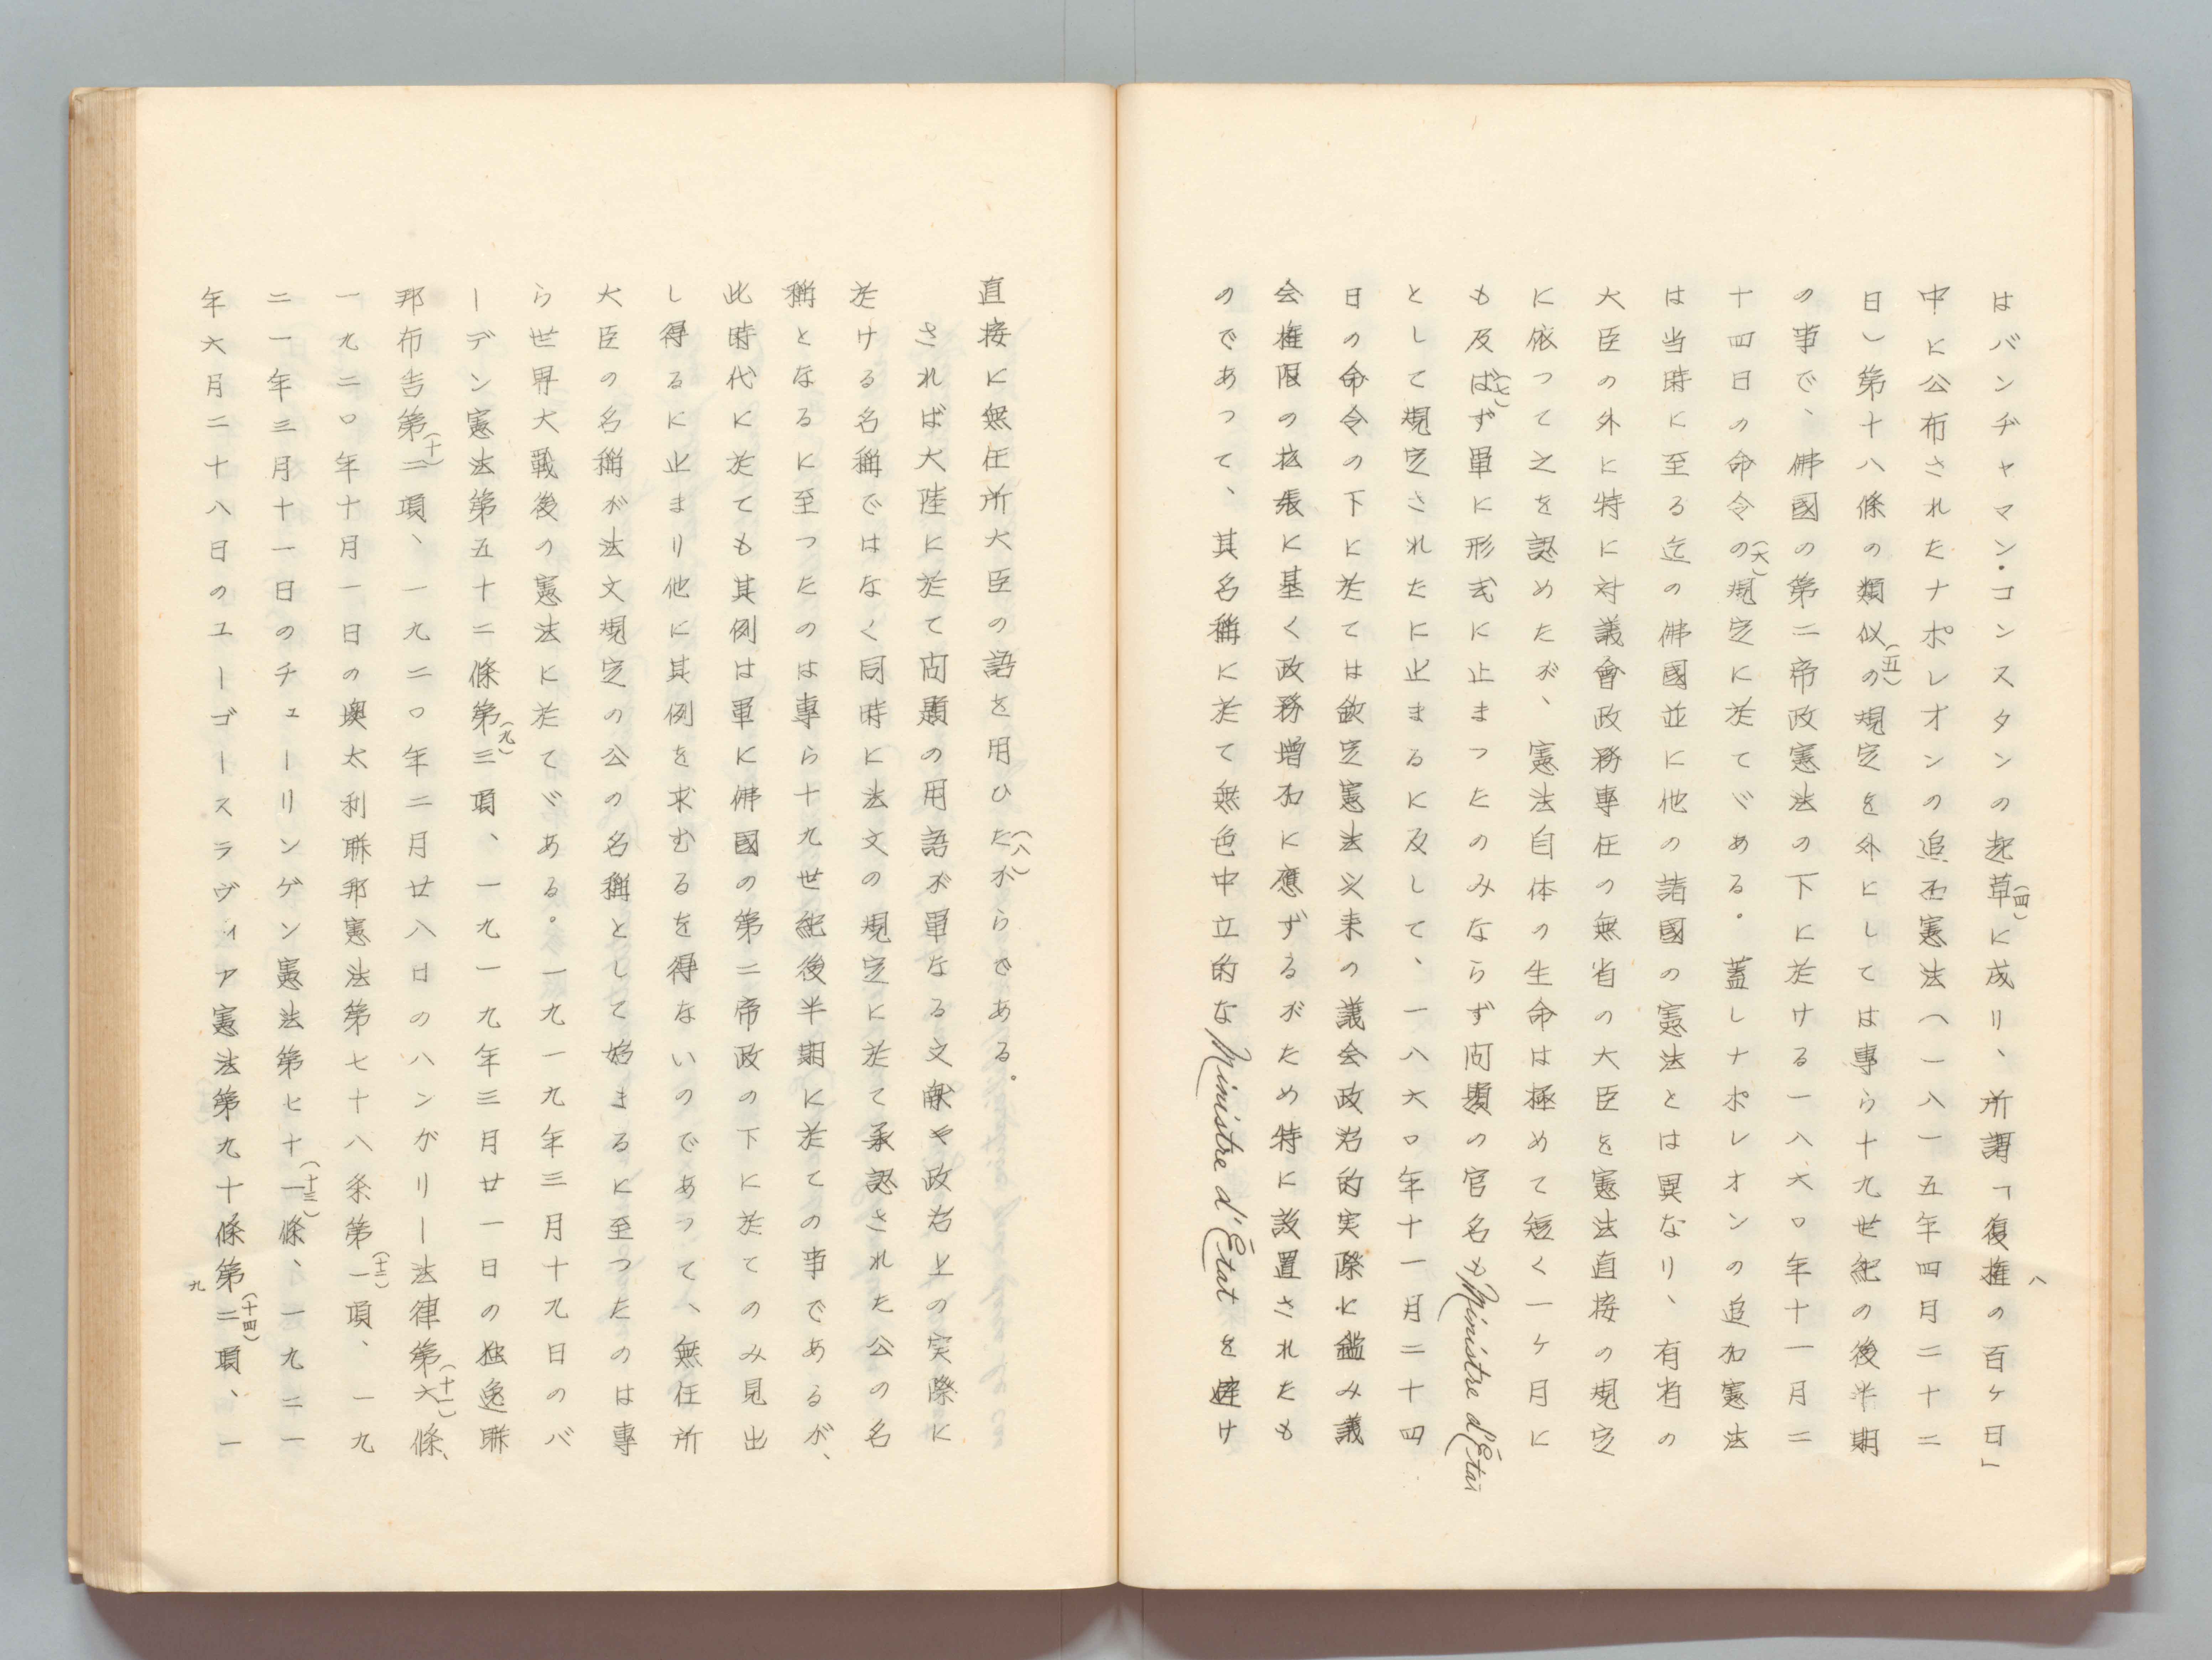 はバンヂャマン・コンスタンの起草(四)に成り、所謂「復権の百ヶ日」
中に公布されたナポレオンの追加憲法(一八一五年四月二十二
日)第十八條の類似(五)の規定を外にしては専ら十九世紀の後半期
の事で、佛國の第二帝政憲法の下に於ける一八六〇年十一月二
十四日の命令の(六)規定に於てゞある。蓋しナポレオンの追加憲法
は当時に至る迄の佛國並に他の諸國の憲法とは異なり、有省の
大臣の外に特に対議會政務専任の無省の大臣を憲法直接の規定
に依つて之を認めたが、憲法自体の生命は極めて短く一ヶ月に
も及ば(七)ず單に形式に止まつたのみならず問題の官名もMinistre d'État
として規定されたに止まるに反して、一八六〇年十一月二十四
日の命令の下に於ては欽定憲法以来の議会政治的実際に鑑み議
会権限の拡張に基く政務増加に應ずるがため特に設置されたも
のであつて、其名稱に於て無色中立的なMinistre d'Étatを避け
八
直接に無任所大臣の語を用ひた(八)からである。
されば大陸に於て問題の用語が單なる文献や政治上の実際に
於ける名稱ではなく同時に法文の規定に於て承認された公の名
稱となるに至つたのは専ら十九世紀後半期に於ての事であるが、
此時代に於ても其例は單に佛國の第二帝政の下に於てのみ見出
し得るに止まり他に其例を求むるを得ないのであつて、無任所
大臣の名稱が法文規定の公の名稱として始まるに至つたのは專
ら世界大戰後の憲法に於てゞある。一九一九年三月十九日のバ
ーデン憲法第五十二條第(九)三項、一九一九年三月廿一日の独逸聯
邦布告第(十)二項、一九二〇年二月廿八日のハンガリー法律第(十一)六條、
一九二〇年十月一日の墺太利聯邦憲法第七十八条第(十二)一項、一九
二一年三月十一日のチューリンゲン憲法第七十(十三)一條、一九二一
年六月二十八日のユーゴースラヴィア憲法第九十條第(十四)二項、一
九